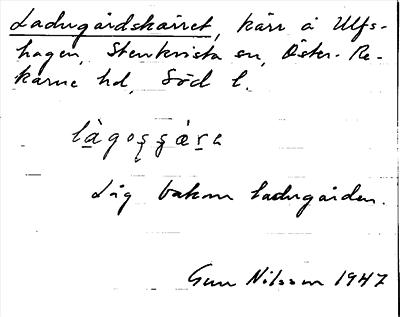 Ladugårdskärret, kärr å Ulfs-
hagen, Stenkvista sn, Öster-Re-
karne hd, Söd l.
Låg bakom ladugården.
Gun Nilsson 1947